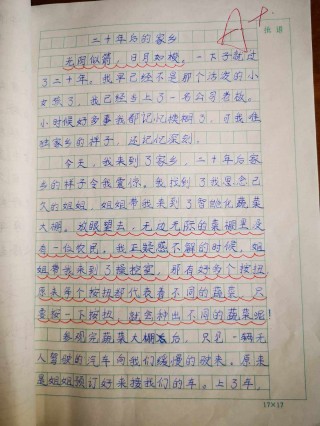 A+
批语
二十年后的家乡
光阴似箭，日月如梭，一下子就过
了二十年。我早已经不是那个活泼的小
女孩了，我已经当上了一名公司老板。
小时候好多事我都记忆模糊了，可我惟
独家乡的样子，还记忆深刻。
今天，我来到了家乡，二十年后家
乡的样子令我震惊。我找到了我思念已
久的姐姐，姐姐带我来到了智能化蔬菜
大棚。放眼望去，无边无际的菜棚里没
有一位农民。我正疑惑不解的时候，姐
姐带我来到了操控室，那有好多个按扭
原来每个按扭都代表着不同的蔬菜，只
要按一下按扭，就会种出不同的蔬菜呢！
参观完蔬菜大棚后，只见一辆无
人驾驶的汽车向我们缓慢的驶来。原来
是姐姐预订好来接我们的车。上了车，
17×17